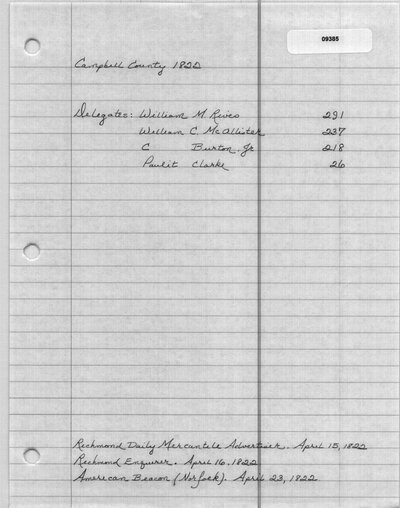 09385
Campbell County 1822
Delegates: William M. Rives 291
William C. McAllister 237
C Burton, Jr 218
Paulit Clarke 26
Richmond Daily Mercantile Advertiser. April 15, 1822
Richmond Enquirer. April 16, 1822
American Beacon (Norfolk). April 23, 1822